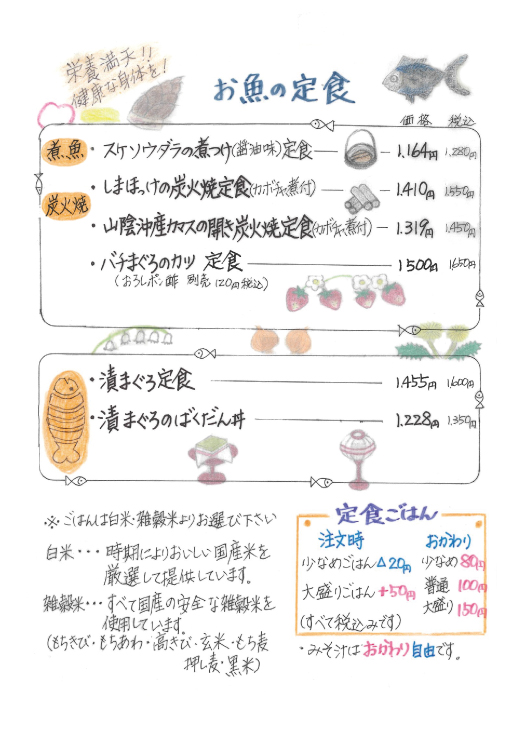 栄養満天!!
健康な身体を!
お魚の定食
価格 税込
煮魚 ・スケソウダラの煮つけ(醤油味)定食 1.164円 1.280円
炭火焼 ・しまほっけの炭火焼定食(カボチャ煮付) 1.410円 1.550円
・山陰沖産カマスの開き炭火焼定食(カボチャ煮付) 1.319円 1.450円
・バチまぐろのカツ 定食 1500円 1650円
(おろしポン酢 別売 120円税込)
・漬まぐろ定食 1.455円 1.600円
・漬まぐろのばくだん丼 1.228円 1.350円
※ごはんは白米・雑穀米よりお選び下さい
白米・・・時期によりおいしい国産米を
厳選して提供しています。
雑穀米・・・すべて国産の安全な雑穀米を
使用しています。
(もちきび・もちあわ・高きび・玄米・もち麦
押し麦・黒米)
定食ごはん
注文時 おかわり
少なめごはん△20円 少なめ 80円
大盛りごはん+50円 普通 100円
大盛り 150円
(すべて税込みです)
・みそ汁はおかわり自由です。